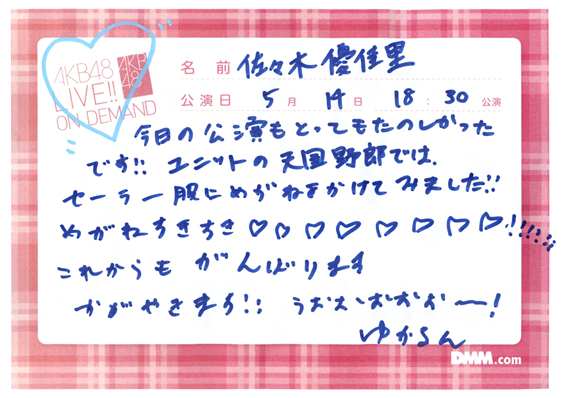 AKB48
LIVE!!
ON DEMAND
AKB
48
名 前 佐々木 優佳里
公演日 5月 14日 18:30 公演
今日の公演もとってもたのしかった
です!! ユニットの天国野郎では、
セーラー服にめがねをかけてみました!!
めがねすきすき♡♡♡♡♡♡♡♡!!!!!!
これからも がんばります
かがやきます!! うおおおおおー!
ゆかるん
DMM.com